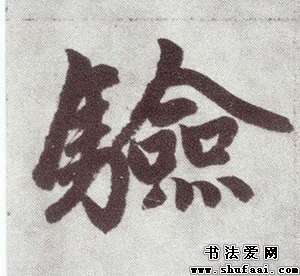 驗
书法爱网
www.shufaai.com